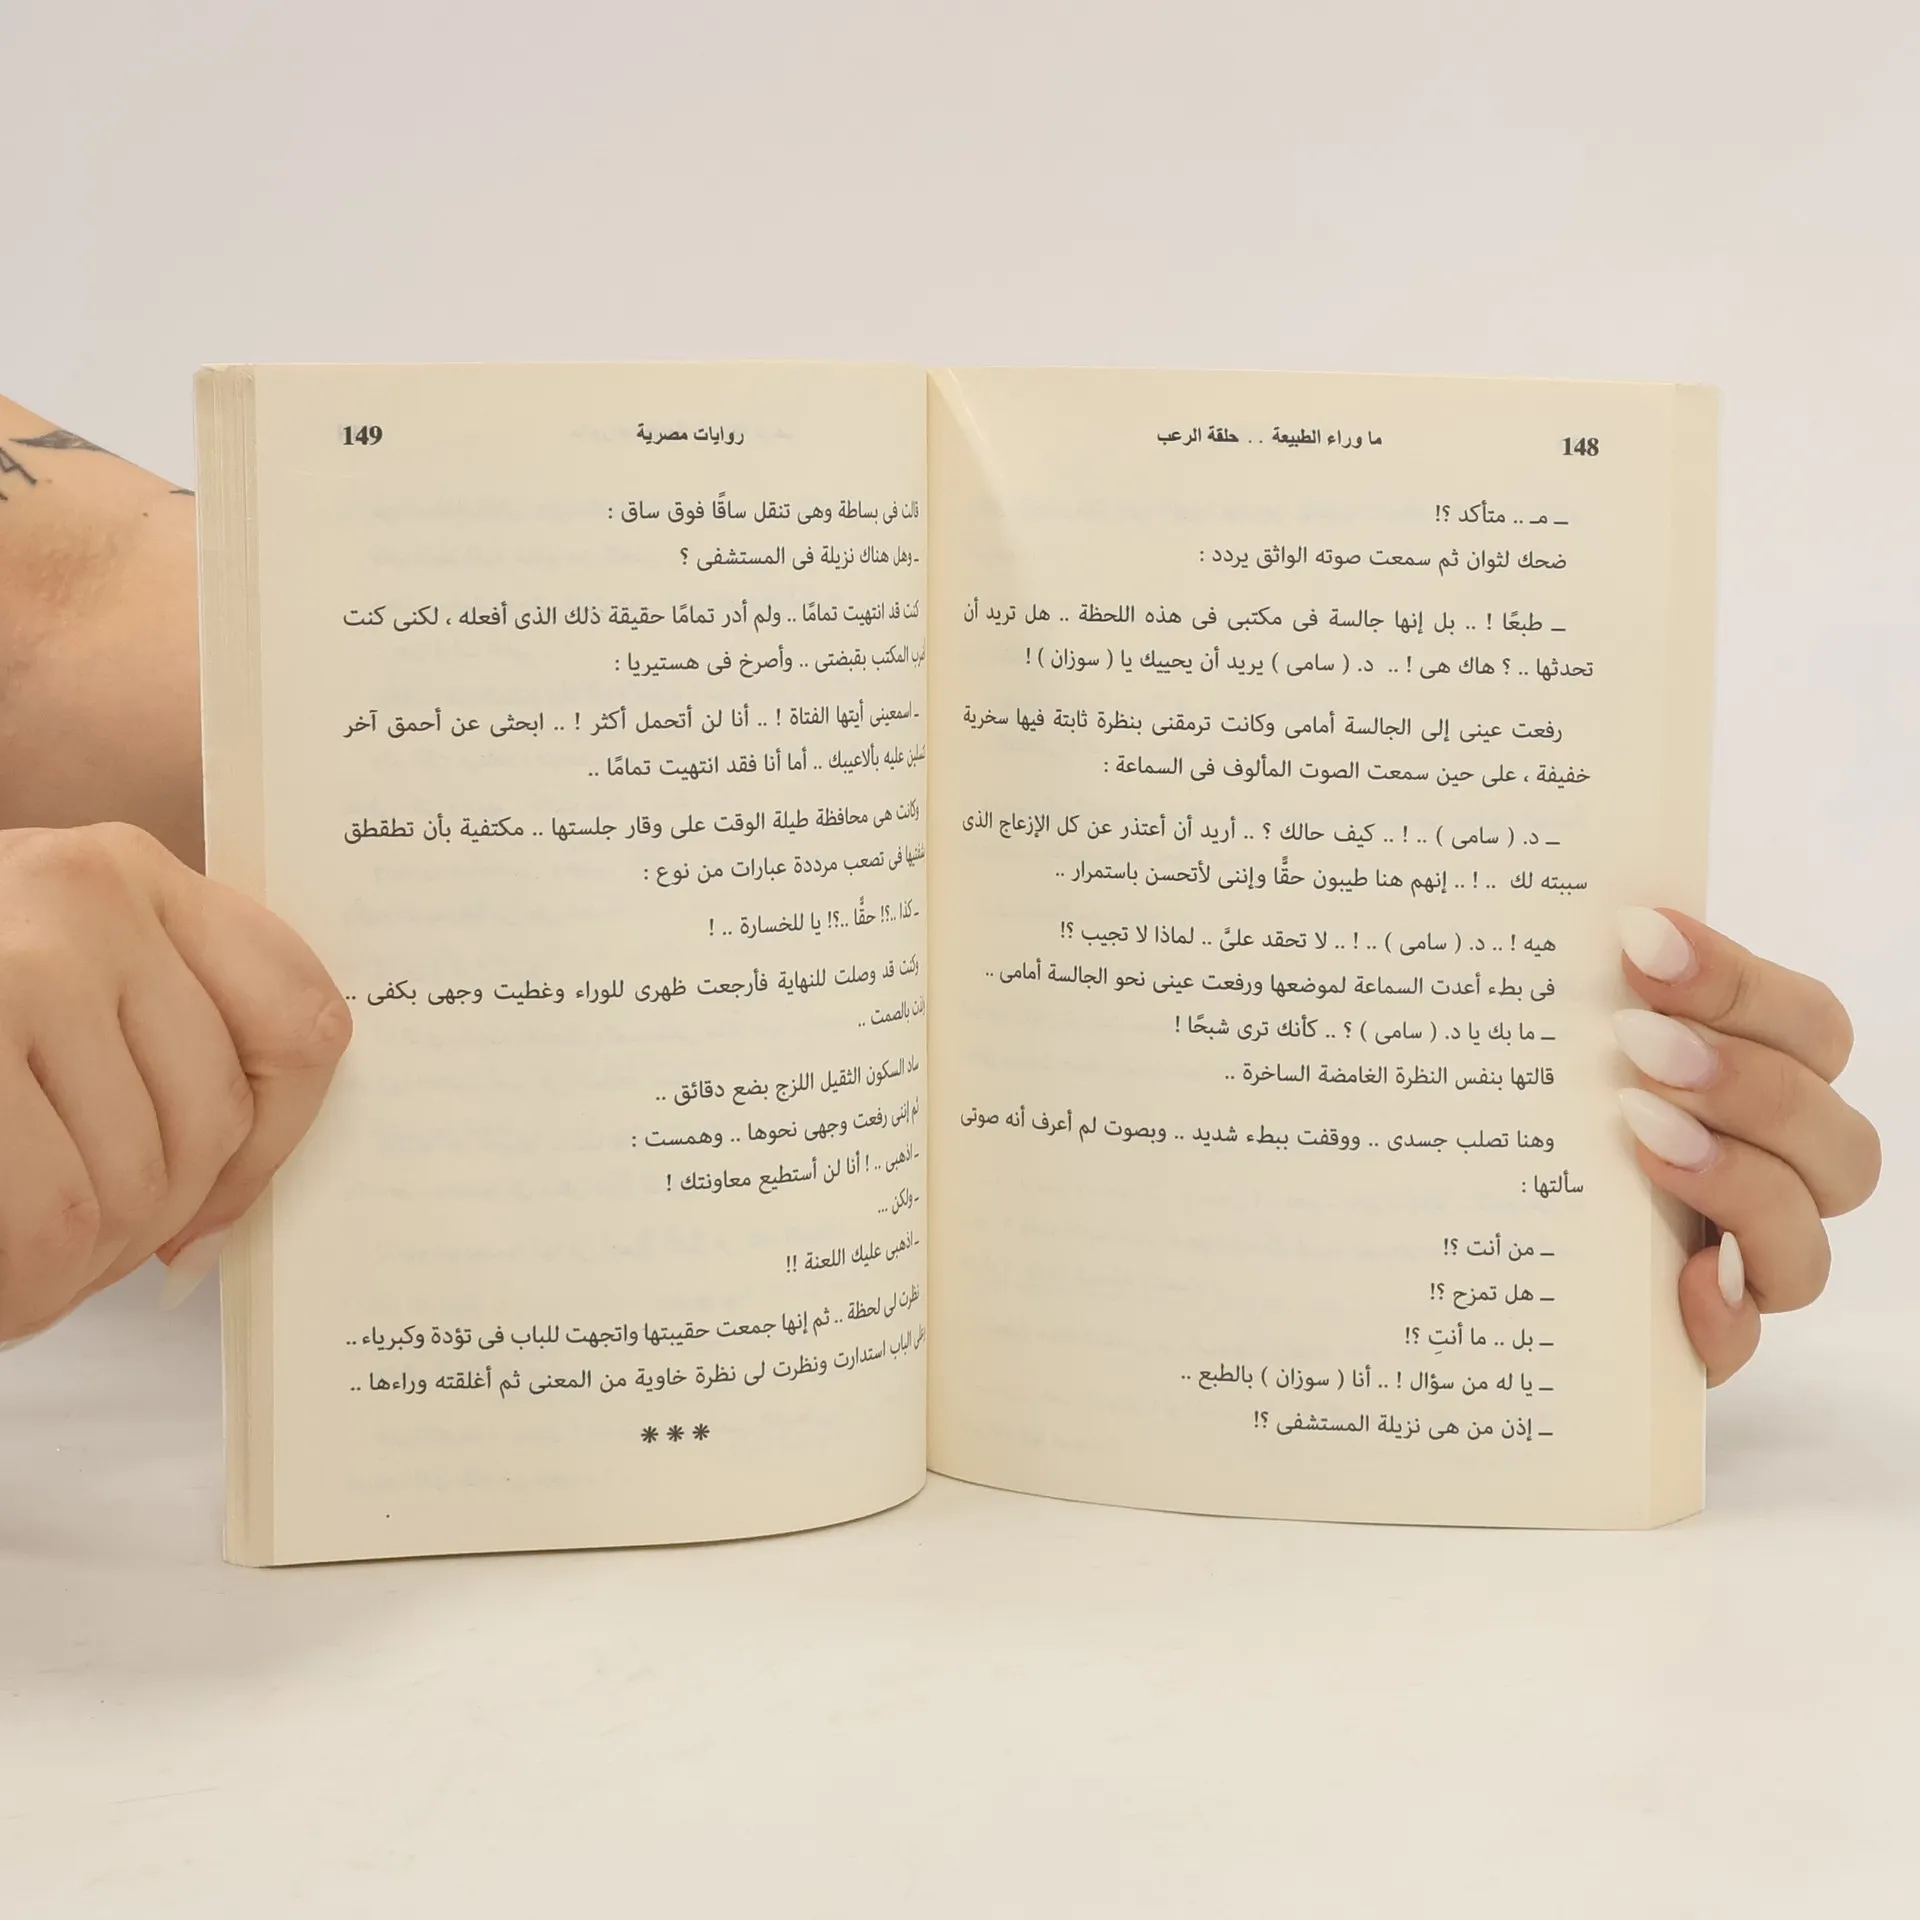 148
ما وراء الطبيعة . . حلقة الرعب
ــ مـ .. متأكد ؟!
ضحك لثوان ثم سمعت صوته الواثق يردد :
ــ طبعًا ! .. بل إنها جالسة فى مكتبى فى هذه اللحظة .. هل تريد أن
تحدثها .. ؟ هاك هى ! .. د. ( سامى ) يريد أن يحييك يا ( سوزان ) !
رفعت عينى إلى الجالسة أمامى وكانت ترمقنى بنظرة ثابتة فيها سخرية
خفيفة ، على حين سمعت الصوت المألوف فى السماعة :
ــ د. ( سامى ) .. ! .. كيف حالك ؟ .. أريد أن أعتذر عن كل الإزعاج الذى
سببته لك .. ! .. إنهم هنا طيبون حقًّا وإننى لأتحسن باستمرار ..
هيه ! .. د. ( سامى ) .. ! .. لا تحقد علىَّ .. لماذا لا تجيب ؟!
فى بطء أعدت السماعة لموضعها ورفعت عينى نحو الجالسة أمامى ..
ــ ما بك يا د. ( سامى ) ؟ .. كأنك ترى شبحًا !
قالتها بنفس النظرة الغامضة الساخرة ..
وهنا تصلب جسدى .. ووقفت ببطء شديد .. وبصوت لم أعرف أنه صوتى
سألتها :
ــ من أنت ؟!
ــ هل تمزح ؟!
ــ بل .. ما أنتِ ؟!
ــ يا له من سؤال ! .. أنا ( سوزان ) بالطبع ..
ــ إذن من هى نزيلة المستشفى ؟!
روايات مصرية
149
قالت فى بساطة وهى تنقل ساقًا فوق ساق :
ـ وهل هناك نزيلة فى المستشفى ؟
كنت قد انتهيت تمامًا .. ولم أدر تمامًا حقيقة ذلك الذى أفعله ، لكنى كنت
المكتب بقبضتى .. وأصرخ فى هستيريا :
ـ اسمعينى أيتها الفتاة ! .. أنا لن أتحمل أكثر ! .. ابحثى عن أحمق آخر
عليه بألاعيبك .. أما أنا فقد انتهيت تمامًا ..
وكانت هى محافظة طيلة الوقت على وقار جلستها .. مكتفية بأن تطقطق
فى تصعب مرددة عبارات من نوع :
ـ كذا ..؟! حقًّا ..؟! يا للخسارة .. !
وكنت قد وصلت للنهاية فأرجعت ظهرى للوراء وغطيت وجهى بكفى ..
بالصمت ..
ساد السكون الثقيل اللزج بضع دقائق ..
ثم إننى رفعت وجهى نحوها .. وهمست :
ـ اذهبى .. ! أنا لن أستطيع معاونتك !
ـ ولكن ...
ـ اذهبى عليك اللعنة !!
نظرت لى لحظة .. ثم إنها جمعت حقيبتها واتجهت للباب فى تؤدة وكبرياء ..
الباب استدارت ونظرت لى نظرة خاوية من المعنى ثم أغلقته وراءها ..
* * *